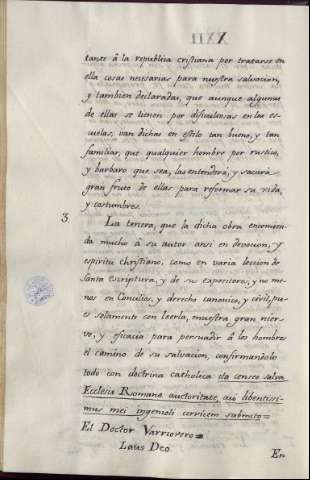 XXII
tante â la republica cristiana por tratarse en
ella cosas necesarias para nuestra salvacion,
y tambien declaradas, que aunque algunas
de ellas se tienen por dificultosas en las es-
cuelas, van dichas en estilo tan bueno, y tan
familiar, que qualquier hombre por rustico,
y barbaro que sea, las entenderá, y sacará
gran fruto de ellas para reformar su vida,
y costumbres.
3. La tercera, que la dicha obra encomien-
da mucho â su autor ansi en devocion, y
espiritu christiano, como en varia leccion de
Santa escriptura, y de sus expositores, y no me-
nos en Concilios, y derecho canonico, y civil, pu-
es solamente con leerla, muestra gran nier-
vo, y eficacia para persuadir â los hombres
el camino de su salvacion, confirmandolo
todo con doctrina catholica ita censeo salva
Ecclesia Romana auctoritate, cui libentissi-
mus mei ingenioli cervicem submito=
El Doctor Varriovero=
Laus Deo.
En